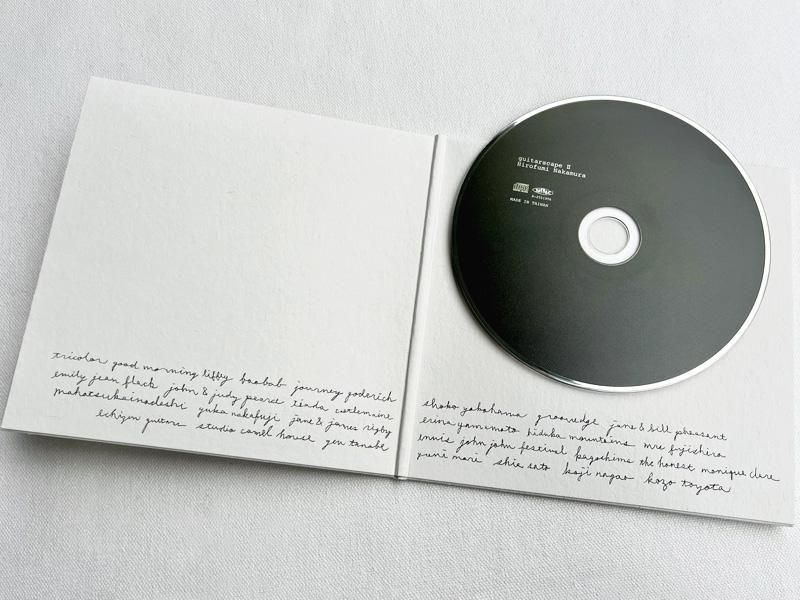 tricolor good morning liffey baobab journey goderich
emily jean flack john & judy pearce téada castlemaine
mahotsukainodeshi yuka nakafuji jane & james rigby
echizen guitars studio camel house gen tanabe
guitarscape II
Hirofumi Nakamura
MADE IN TAIWAN
shoko yokohama groovedge jane & bill pheasant
erina yamamoto hiduka mountains mre fujishiro
ennis john john festival kagoshima the honest monique clare
yumi mori shia sato koji nagao kozo toyota